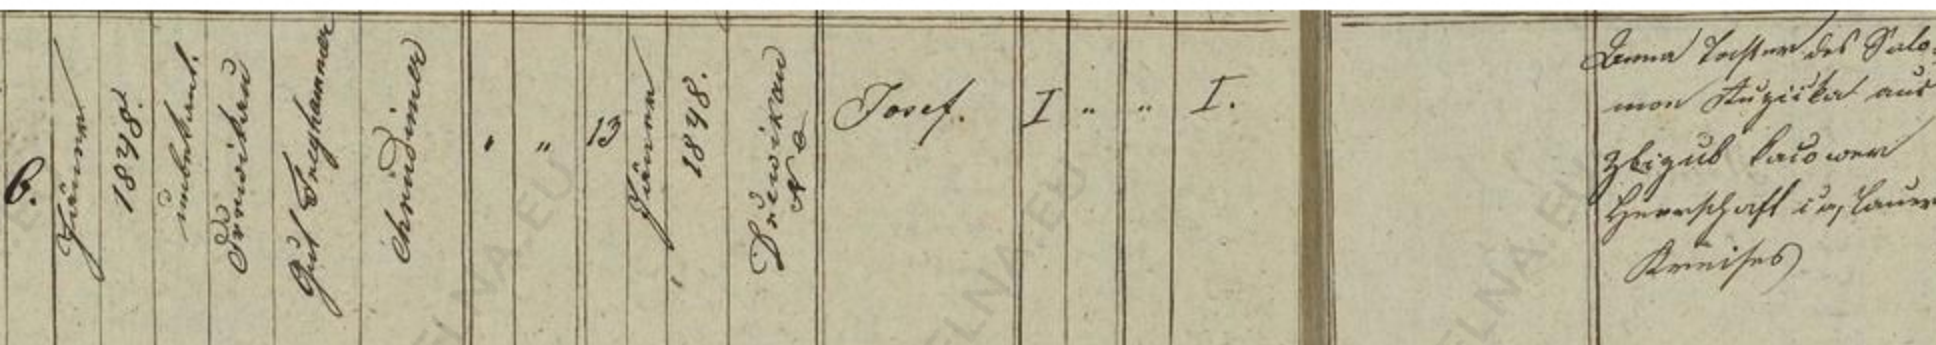 6.
Jänner
1848.
unbekant.
Drewikau
Gut Freyhammer
Chrudimer
" "
13
Jänner
1848.
Drewikau
No
Josef.
I " " I.
Anna Tochter des Salo-
mon Ružička aus
Zbizub
Herrschaft
Kreises